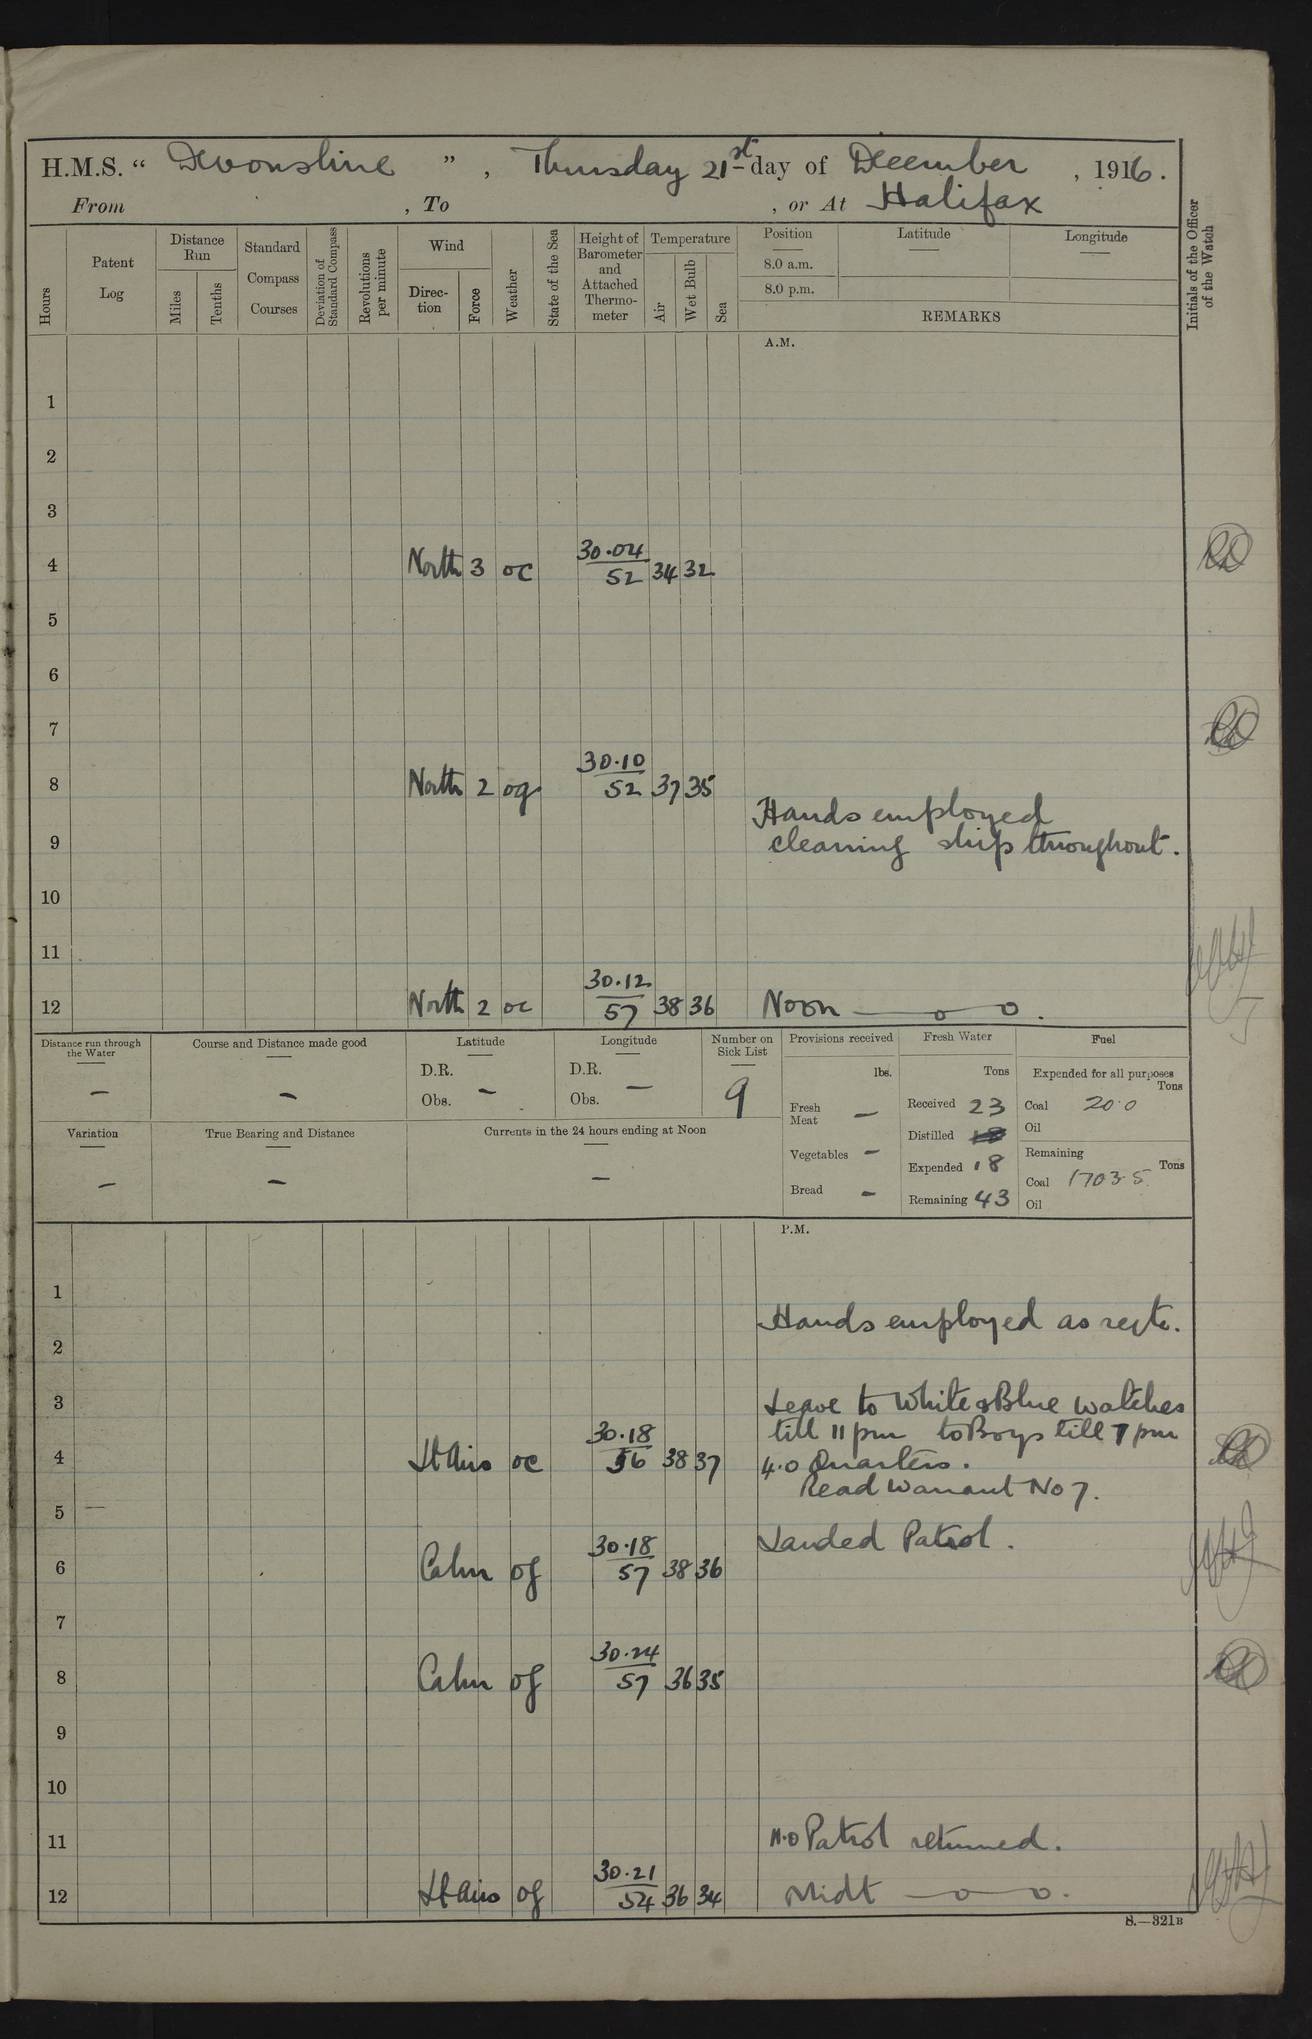 H.M.S. “ Devonshire ” , Thursday 21st day of December , 1916.
From , To , or At Halifax
Hours
Patent Log
Distance Run
Miles
Tenths
Standard Compass Courses
Deviation of Standard Compass
Revolutions per minute
Wind
Direc-tion
Force
Weather
State of the Sea
Height of Barometer and Attached Thermo-meter
Temperature
Air
Wet Bulb
Sea
Position Latitude Longitude
8.0 a.m.
8.0 p.m.
REMARKS
Initials of the Officer of the Watch
A.M.
1
2
3
4 North 3 oc 30.04/52 34 32
5
6
7
8 North 2 og 30.10/52 37 35
Hands employed
9 cleaning ship throughout.
10
11
12 North 2 oc 30.12/57 38 36 Noon
Distance run through the Water –
Course and Distance made good –
Latitude
D.R.
Obs. –
Longitude
D.R.
Obs. –
Number on Sick List
9
Variation –
True Bearing and Distance –
Currents in the 24 hours ending at Noon –
Provisions received
lbs.
Fresh Meat –
Vegetables –
Bread –
Fresh Water
Tons
Received 23
Distilled
Expended 18
Remaining 43
Fuel
Expended for all purposes
Tons
Coal 20.0
Oil
Remaining
Tons
Coal 1703.5
Oil
P.M.
1
Hands employed as reqte.
2
3 Leave to White & Blue watches
till 11 pm to Boys till 7 pm
4 Lt Airs oc 30.18/56 38 37 4.0 Quarters.
Read Warrant No 7.
5
Landed Patrol.
6 Calm of 30.18/57 38 36
7
8 Calm of 30.24/57 36 35
9
10
11 11.0 Patrol returned.
12 Lt Airs of 30.21/54 36 34 Midt
S.—321B